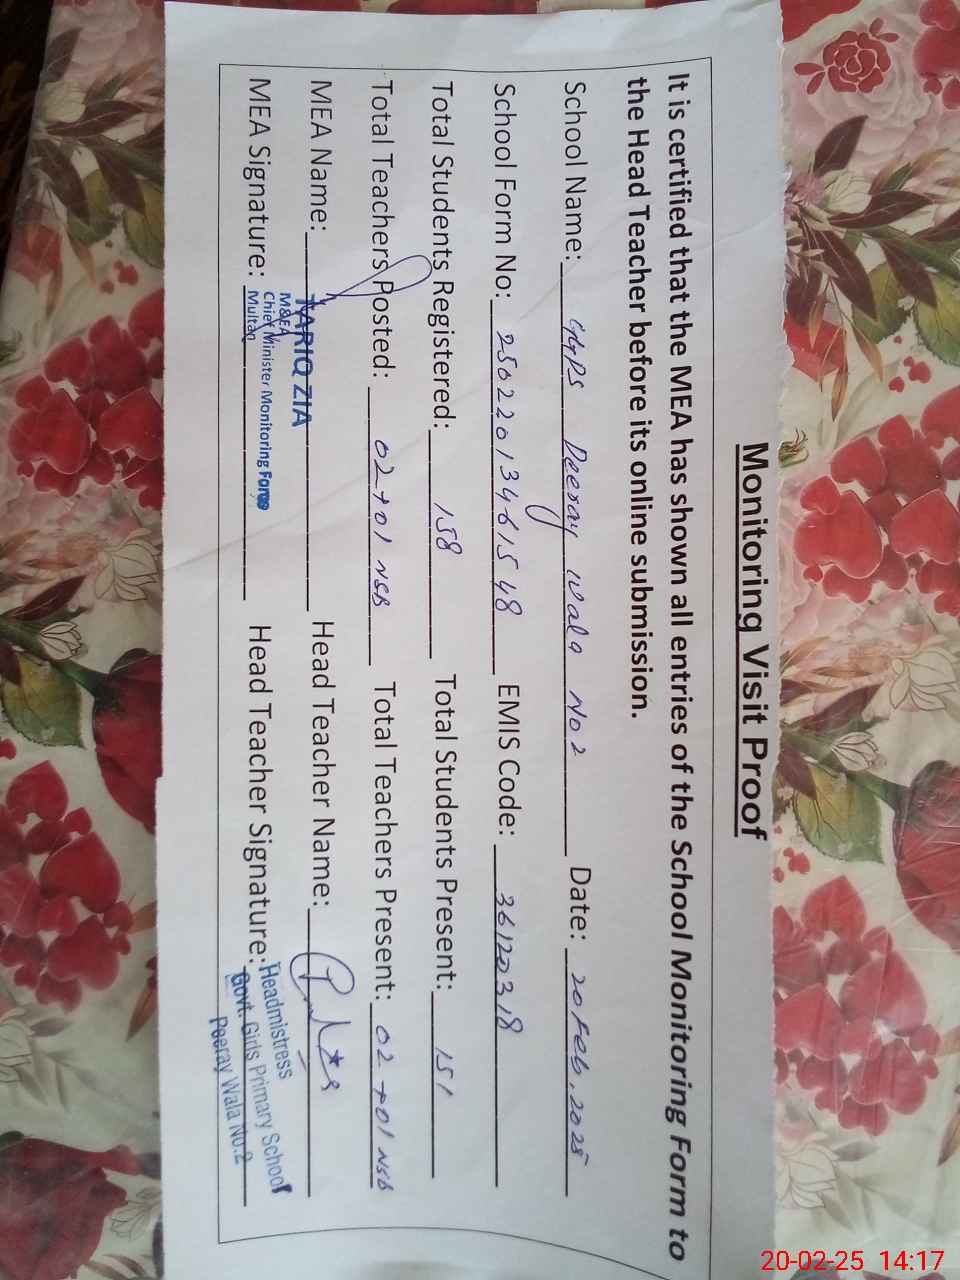 Monitoring Visit Proof
It is certified that the MEA has shown all entries of the School Monitoring Form to
the Head Teacher before its online submission.
School Name: GGPS Peeray Wala No 2 Date: 20 Feb, 2025
School Form No: 250220134615 48 EMIS Code: 36120318
Total Students Registered: 158 Total Students Present: 151
Total Teachers Posted: 02+01 NSB Total Teachers Present: 02+01 NSB
MEA Name: TARIQ ZIA Head Teacher Name:
M&EA
Chief Minister Monitoring Force
Multan
MEA Signature: Head Teacher Signature:
Headmistress
Govt. Girls Primary School
Peeray Wala No.2
20-02-25 14:17